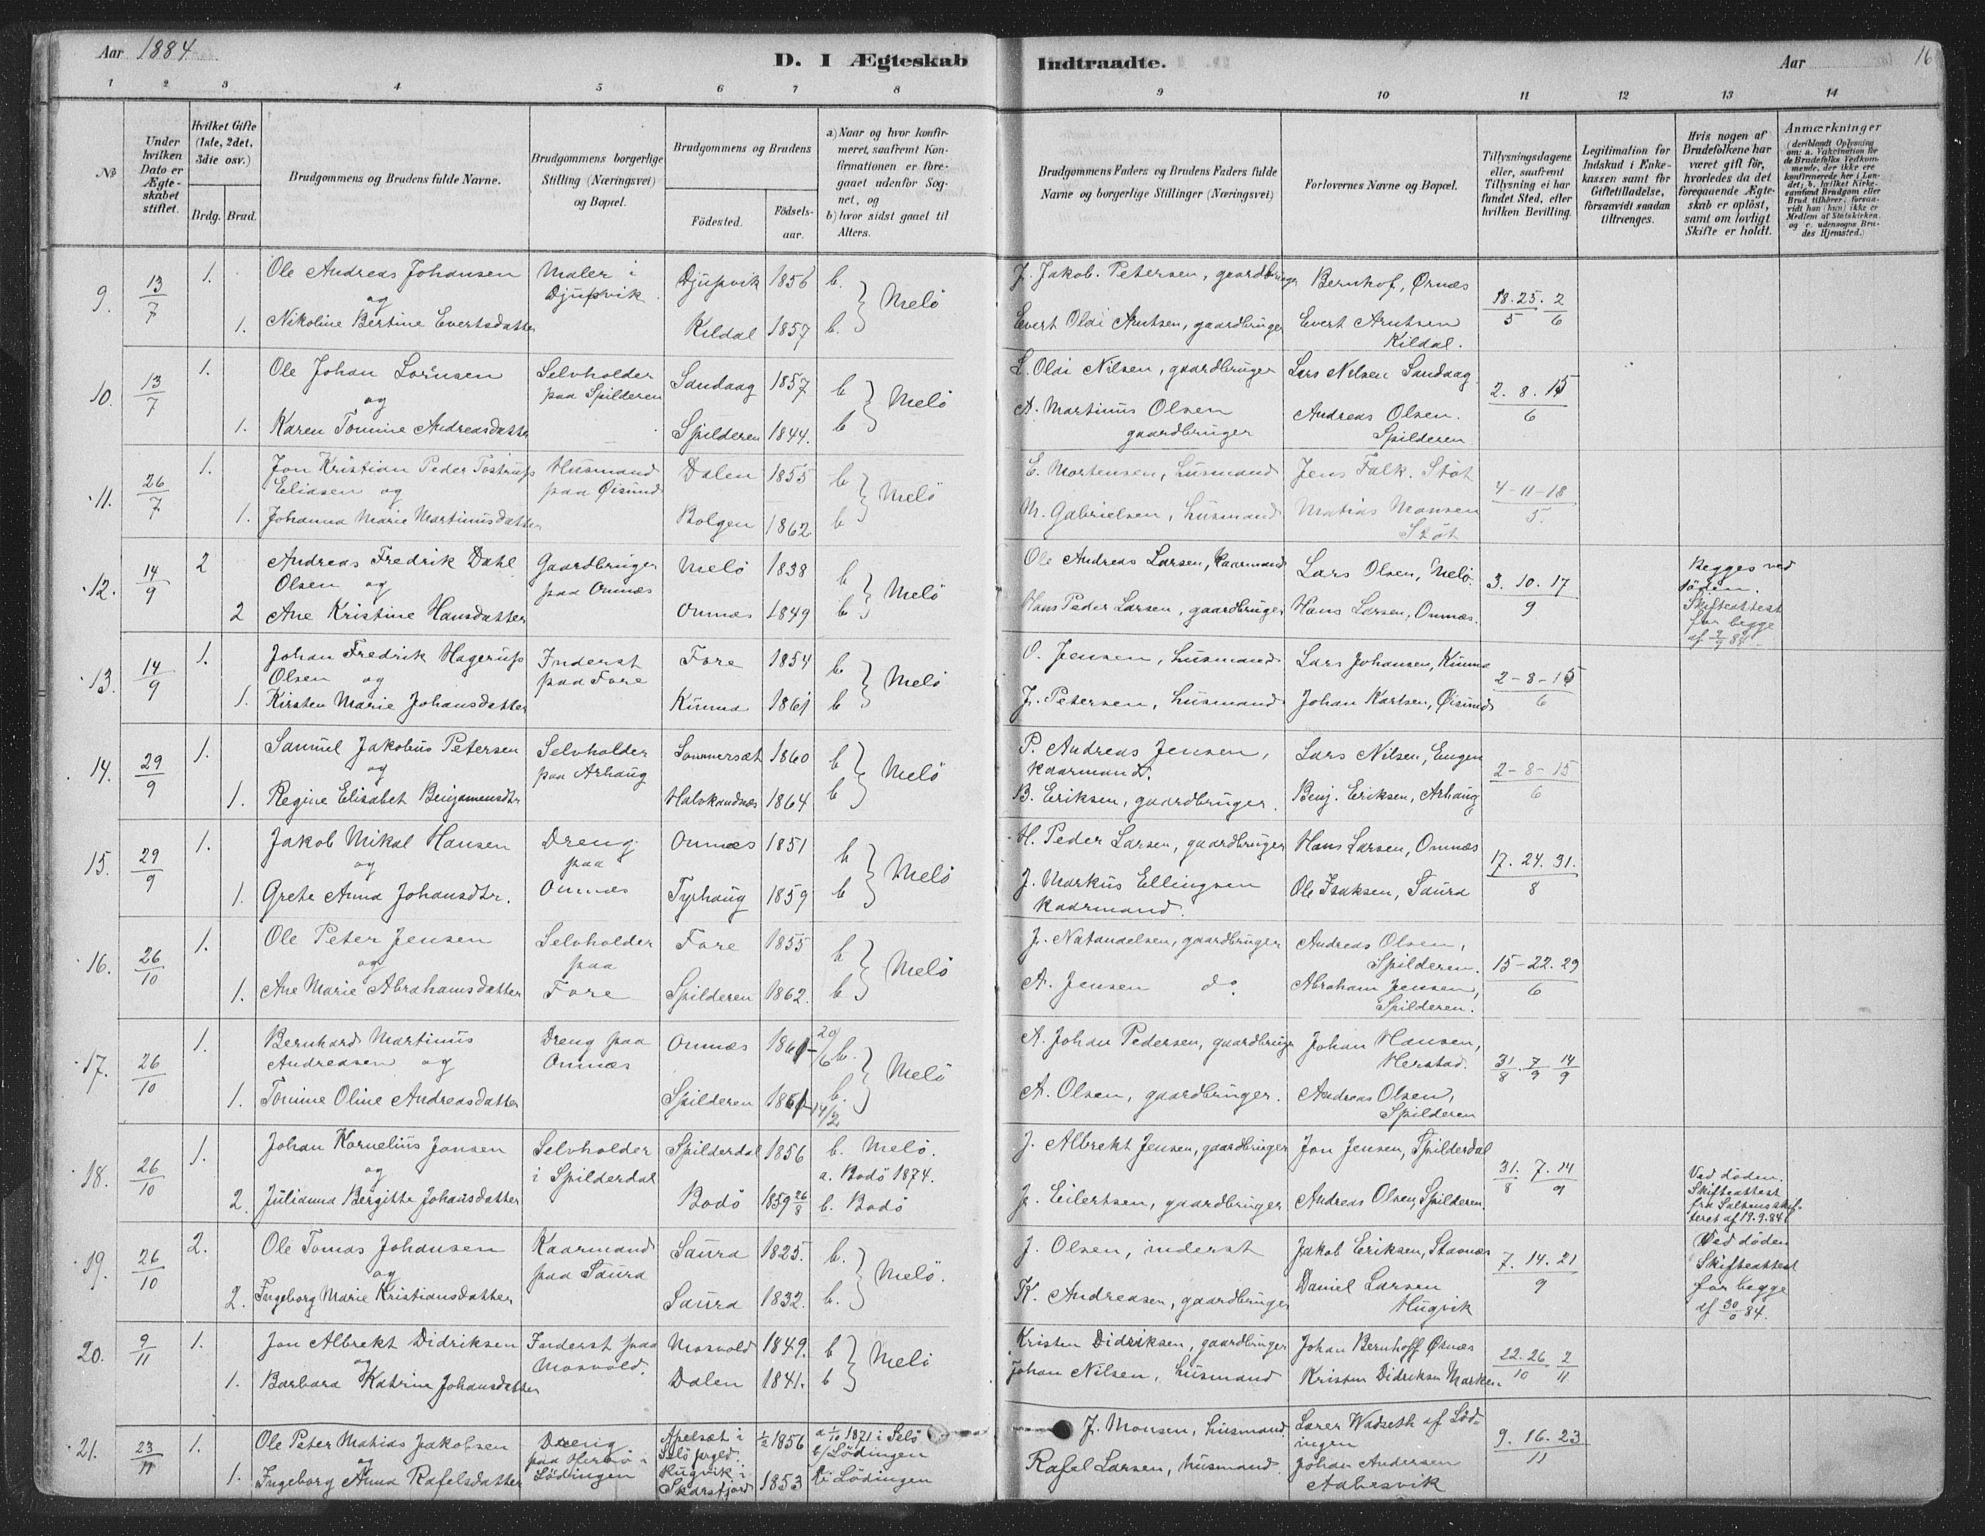 Aar 1884
D. I Ægteskab Indtraadte.
Aar
16
1 2 3 4 5 6 7 8 9 10 11 12 13 14
No
Under hvilken Dato er Ægteskabet stiftet.
Hvilket Gifte (1ste, 2det, 3die osv.)
Brdg. Brud.
Brudgommens og Brudens fulde Navne.
Brudgommens borgerlige Stilling (Næringsvei) og Bopæl.
Brudgommens og Brudens
Fødested.
Fødselsaar.
a) Naar og hvor konfirmeret, saafremt Konfirmationen er foregaaet udenfor Sognet, og
b) hvor sidst gaaet til Alters.
Brudgommens Faders og Brudens Faders fulde Navne og borgerlige Stillinger (Næringsvei)
Forlovernes Navne og Bopæl.
Tillysningsdagene eller, saafremt Tillysning ei har fundet Sted, efter hvilken Bevilling.
Legitimation for Indskud i Enkekassen samt for Giftetilladelse, forsaavidt saadan tiltrænges.
Hvis nogen af Brudefolkene har været gift før, hvorledes da det foregaaende Ægteskab er opløst, samt om lovligt Skifte er holdt.
Anmærkninger (deriblandt Oplysning om: a. Vakcination for de Brudefolks Vedkommende, der ikke ere konfirmerede her i Landet; b. hvilket Kirkesamfund Brudgom eller Brud tilhører, forsaavidt han (hun) ikke er Medlem af Statskirken, og c. udensogns Brudes Hjemsted.)
9. 13/7 1. Ole Andreas Johansen Maler i Djupvik 1856 b. J. Jakob Petersen, gaardbruger Bernhof, Ørnæs 18. 25. 2
og Djupvik. } Melö 5 6
1. Nikoline Bertine Evertsdatter Kildal 1857 b. Evert Oldi Arntsen, gaardbruger Evert Arntsen
Kildal.
10. 13/7 1. Ole Johan Lorensen Selvholder Sandaag 1857 b L. Olai Nilsen, gaardbruger Lars Nilsen Sandaag
og paa Spilderen } Melö 2. 8. 15
1. Karen Tomine Andreasdatter Spilderen 1844. b A. Martinus Olsen Andreas Olsen. 6
gaardbruger Spilderen
11. 26/7 1. Jon Kristian Peder Tostrups Husmand Dalen 1855 b E. Mortensen, husmand Jens Falk. Støt
Eliasen og paa Øisund } Melö 4-11-18
1. Johanna Marie Martinusdatter Bolgen 1862. b M. Gabrielsen, husmand Matias Monsen 5.
Støt
12. 14/9 2 Andreas Fredrik Dahl Gaardbruger Melö 1838 b Ole Andreas Larsen, kaarmand Lars Olsen, Melö. 3. 10. 17 Begges ved
Olsen og paa Onnæs } Melö 9 döden.
2 Ane Kristine Hansdatter Onnæs 1849 b Hans Peder Larsen, gaardbruger Hans Larsen, Onnæs. Skifteattest
for begge
af 2/9 84.
13. 14/9 1. Johan Fredrik Hagerups Inderst Fore 1854 b O. Jensen, husmand Lars Johansen, Kunna 2-8-15
Olsen og paa Fore } Melö 6
1. Kirsten Marie Johansdatter Kunna 1861 b J. Petersen, husmand Johan Karlsen, Øisund
14. 29/9 1. Samuel Jakobus Petersen Selvholder Sommersæt 1860 b P. Andreas Jensen, Lars Nilsen, Engen
og paa Arhaug } Melö kaarmand. 2-8-15
1. Regine Elisabet Benjaminsdtr Halskandnæs 1864 b B. Eriksen, gaardbruger. Benj. Eriksen, Arhaug 6
15. 29/9 1. Jakob Mikal Hansen Dreng Onnæs 1851 b H. Peder Larsen, gaardbruger Hans Larsen, Onnæs
og paa } Melö 17. 24. 31.
1. Grete Anna Johansdtr. Onnæs Tyrhaug 1859 b J. Markus Ellingsen Ole Isaksen, Saura 8
kaarmand.
16. 26/10 1. Ole Peter Jensen Selvholder Fore 1855 b J. Natanaelsen, gaardbruger Andreas Olsen,
og paa } Melö Spilderen. 15-22. 29
1. Ane Marie Abrahamsdatter Fore Spilderen 1862. b A. Jensen do Abraham Jensen, 6
Spilderen.
17. 26/10 1. Bernhard Martinus Dreng paa Onnæs 1861 20/6 b. A. Johan Pedersen, gaardbruger Johan Hansen,
Andreasen og Onnæs } Melö Herstad. 31/8 . 7/9 14/9
1. Tomine Oline Andreasdatter Spilderen 1861 14/2 b. A. Olsen, gaardbruger. Andreas Olsen,
Spilderen
18. 26/10 1. Johan Kornelius Jonsen Selvholder Spilderdal 1856 b. Melö. J. Albrekt Jensen, gaardbruger Jon Jensen, Spilderdal 31. 7. 14 Ved døden.
og i Spilderdal a. Bodö 1874. 8 9 Skifteattest
2. Julianna Bergitte Johansdatter Bodö 1859 26/8 b. Bodö J. Eilertsen, gaardbruger Andreas Olsen, Spilderen fra Saltens skifteret af 19.9.84
19. 26/10 2. Ole Tomas Johansen Kaarmand Saura 1825. b. J. Olsen, inderst Jakob Eriksen, Stavnæs 7. 14. 21 Ved døden
og paa Saura } Melö. Skifteattest
2. Ingeborg Marie Kristiansdatter Saura 1832. b. K. Andreasen, gaardbruger Daniel Larsen 9 for begge
Hugvik af 30/6 84.
20. 9/11 1. Jon Albrekt Didriksen Inderst paa Mosvold 1849. b Kristen Didriksen, gaardbruger Johan Bernhoff Ørnæs 22. 26 2
og Mosvold. } Melö 10 11
1. Barbara Katrine Johansdatter Dalen 1841. b Johan Nilsen, husmand Kristen Didriksen Marken
21. 23/11 1. Ole Peter Matias Jakobsen Dreng Apelsæt i 1/2 1856 a 1/10 1871 i Selö J. Monsen, husmand Lærer Wadseth af Lödingen 9. 16. 23
og paa i Selö prgld. b/ Lödingen 11
1. Ingeborg Anna Rafelsdatter Lödingen Hugvik i Skarsfjord 1853 Lödingen Rafel Larsen, husmand Johan Andersen
Aabesvik